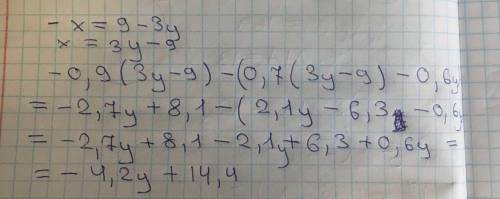 - x = 9 - 3y
x = 3y - 9
- 0,9 (3y - 9) - (0,7 (3y - 9) - 0,6y
= - 2,7y + 8,1 - (2,1y - 6,3 - 0,6y
= - 2,7y + 8,1 - 2,1y + 6,3 + 0,6y =
= - 4,2y + 14,4